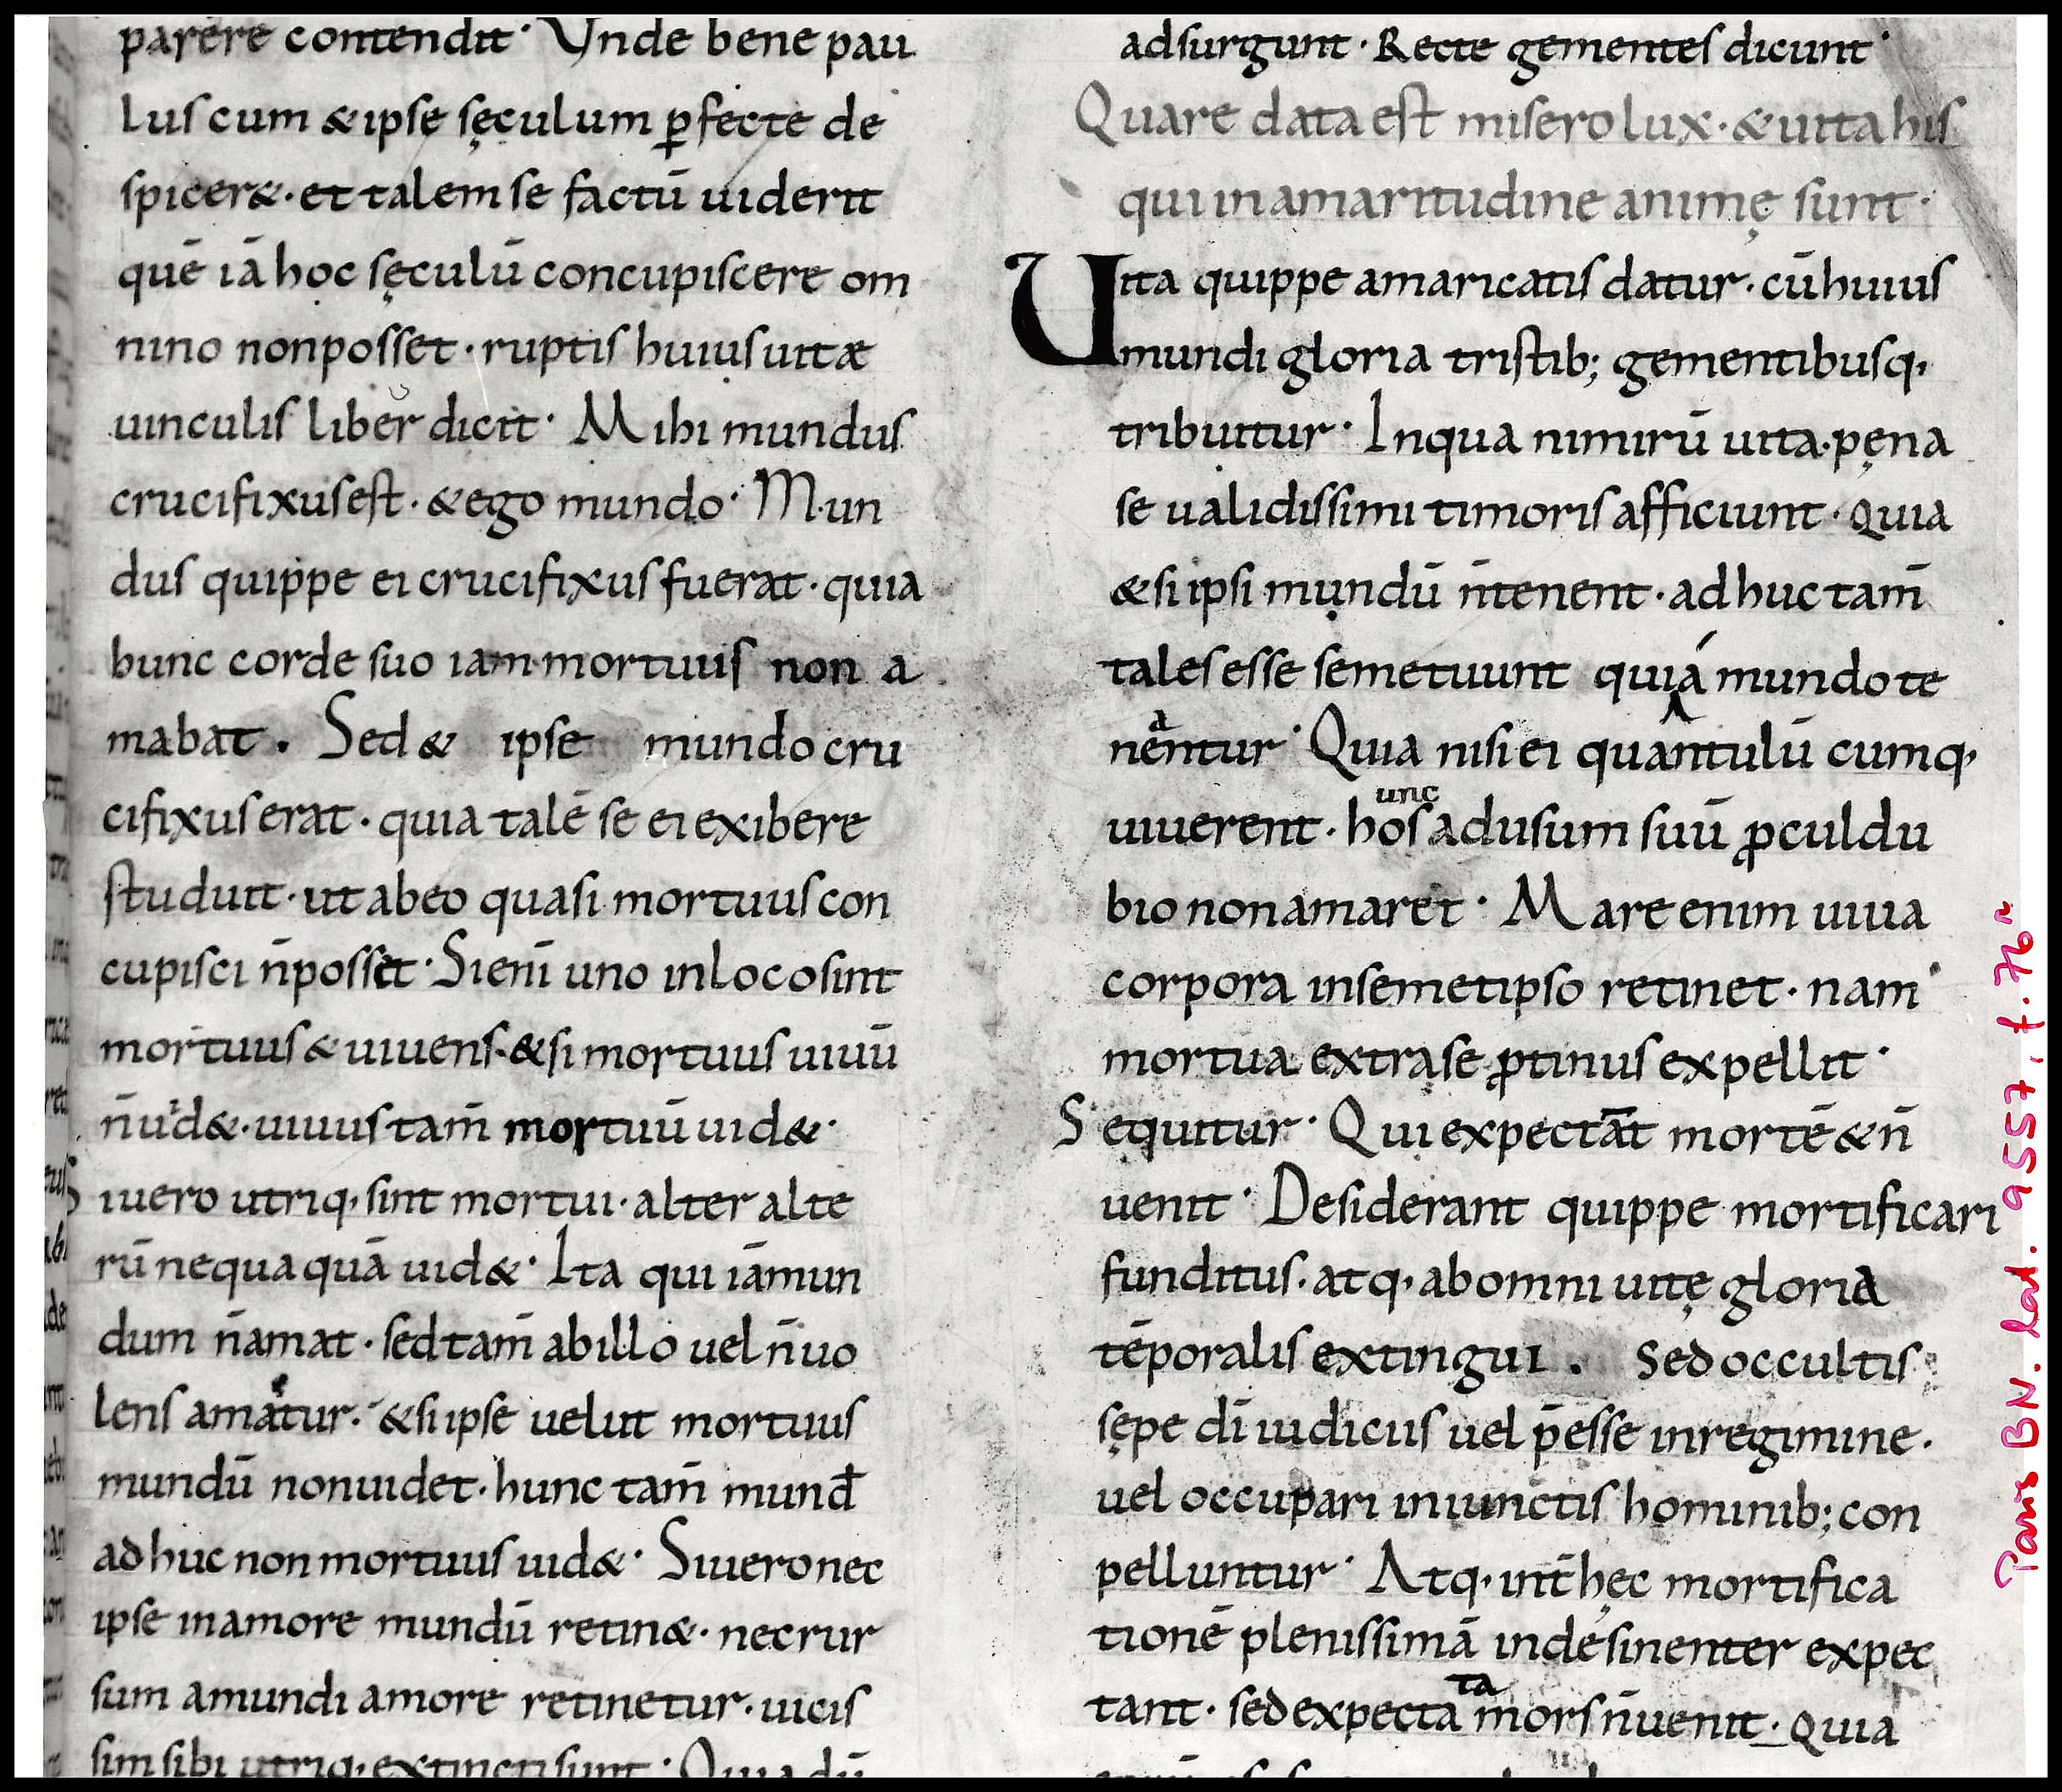 parere contendit· Unde bene pau
lus cum & ipse sęculum ꝑfecte de
spicer&· et talem se factū uiderit
quē iā hoc sęculū concupiscere om
nino non posset· ruptis huius uitæ
uinculis liber dicit· Mihi mundus
crucifixus est· & ego mundo· Mun
dus quippe ei crucifixus fuerat· quia
hunc corde suo iam mortuus non a
mabat. Sed & ipse mundo cru
cifixus erat· quia talē se ei exibere
studuit· ut ab eo quasi mortuus con
cupisci n̄ posset· Si eni̅ uno in loco sint
mortuus & uiuens· & si mortuus uiuū
n̄ uid&· uiuus tam̄ mortuū uid&·
Si uero utriq· sint mortui· alter alte
rū nequaquā uid&· Ita qui iā mun
dum n̄ amat· sed tam̄ ab illo uel n̄ uo
lens amatur· & si ipse uelut mortuus
mundū non uidet· hunc tam̄ mund̄
adhuc non mortuus uid&· Si uero nec
ipse in amore mundū retin&· nec rur
sum a mundi amore retinetur· uicis
sim sibi utriq· extincti sunt· Quia dū
adsurgunt· Recte gementes dicunt·
Quare data est misero lux· & uita his
qui in amaritudine animę sunt·
Uita quippe amaricatis datur· cū huius
mundi gloria tristib; gementibusq·
tribuitur· In qua nimirū uita· pęna
se ualidissimi timoris afficiunt· Quia
& si ipsi mundū n̄ tenent· adhuc tam̄
tales esse se metuunt qui á mundo te
neantur· Quia nisi ei quantulū cumq·
uiuerent· hos unc ad usum suū ꝓculdu
bio non amaret· Mare enim uiua
corpora in semetipso retinet· nam
mortua extra se ꝓtinus expellit·
Sequitur· Qui expectāt mortē & n̄
uenit· Desiderant quippe mortificari
funditus· atq· ab omni uitę gloria
tēporalis extingui. Sed occultis
sępe dī iudiciis uel p̄esse in regimine·
uel occupari iniunctis hominib; con
pelluntur· Atq· int̄ hęc mortifica
tionē plenissimā indesinenter expec
tant· sed expectata mors n̄ uenit· Quia
Paris BN. lat. 9557, f. 76r